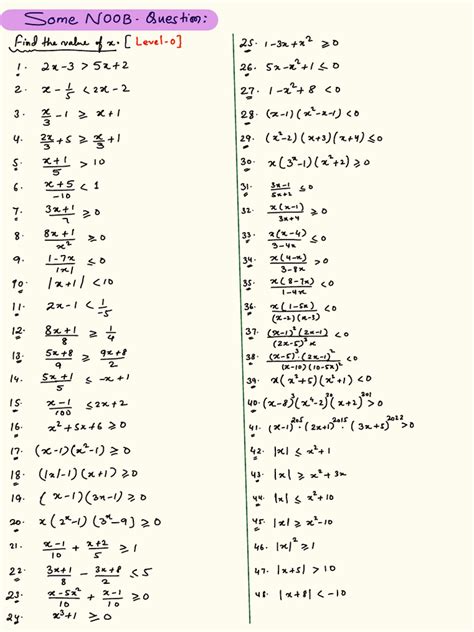 Some NOOB - Question:
Find the value of x. [Level-0]
1. 2x-3 > 5x+2
2. x - 1/5 < 2x-2
3. x/3 - 1 ≥ x+1
4. 2x/3 + 5 ≥ x/3 + 1
5. (x+1)/5 > 10
6. (x+5)/-10 < 1
7. (3x+1)/7 ≥ 0
8. (8x+1)/x² ≥ 0
9. (1-7x)/|x| ≤ 0
10. |x+1| < 10
11. 2x-1 < 1/-5
12. (8x+1)/8 ≥ 1/4
13. (5x+8)/9 ≥ (9x+8)/2
14. (5x+1)/5 ≤ -x+1
15. (x-1)/100 ≤ 2x+2
16. x²+5x+6 ≥ 0
17. (x-1)(x²-1) ≥ 0
18. (|x|-1)(x+1) ≥ 0
19. (x-1)(3x-1) ≥ 0
20. x(2ˣ-1)(3ˣ-9] ≥ 0
21. (x-1)/10 + (x+2)/5 ≥ 1
22. (3x+1)/8 - (3x+8)/2 ≤ 5
23. (x-5x²)/10 + (x-1)/10 ≥ 0
24. x³+1 ≥ 0
25. 1-3x+x² ≥ 0
26. 5x-x²+1 ≤ 0
27. 1-x²+8 < 0
28. (x-1)(x²-x-1) < 0
29. (x²-2)(x+3)(x+4) ≤ 0
30. x(3ˣ-1)(x²+2) ≥ 0
31. (3x-1)/(5x+2) ≤ 0
32. x(x-1)/(3x+4) ≥ 0
33. x(x-4)/(3-4x) ≤ 0
34. x(4-x)/(3-8x) > 0
35. x(8-7x)/(1-4x) < 0
36. x(1-5x)/((x-2)(x-3)) < 0
37. (x-1)²(2x-1)/((2x-5)³x) < 0
38. (x-5)³(2x-1)²/((x-10)(10-5x)²) < 0
39. x(x²+5)(x²+1) < 0
40. (x-8)³(x⁴-2)³⁰(x+2)³ > 0
41. (x-1)²⁰⁵·(2x+1)²⁰¹⁵·(3x+5)²⁰²² > 0
42. |x| ≤ x²+1
43. |x| ≥ x²+3x
44. |x| ≤ x²+10
45. |x| ≥ x²-10
46. |x|² ≥ 1
47. |x+5| > 10
48. |x+8| < -10